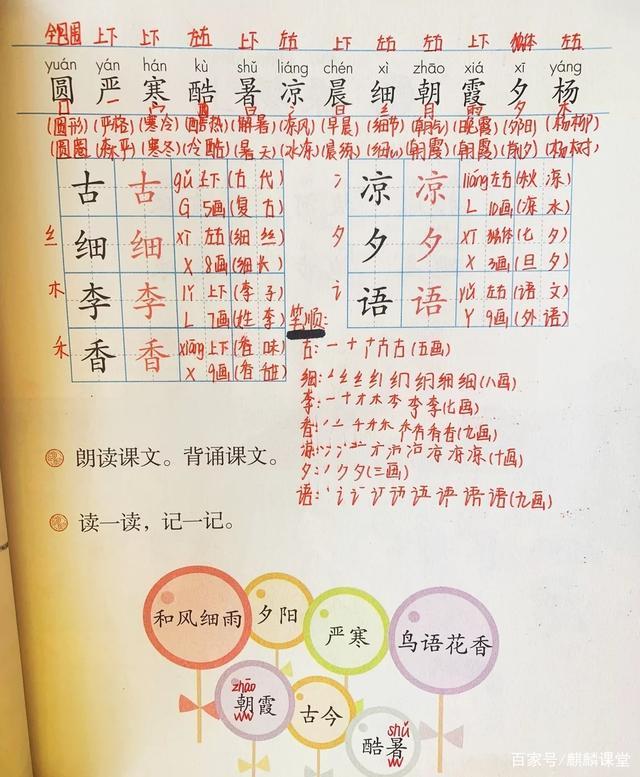 全包围 上下 上下 左右 上下 左右 上下 左右 左右 上下 独体 左右
yuán yán hán kù shǔ liáng chén xì zhāo xiá xī yáng
圆 严 寒 酷 暑 凉 晨 细 朝 霞 夕 杨
囗 一 宀 酉 日 冫 日 纟 月 雨 夕 木
(圆形)(严格)(寒冷)(酷热)(解暑)(凉风)(早晨)(细节)(朝气)(晚霞)(夕阳)(杨柳)
(圆圈)(森严)(寒冬)(冷酷)(暑天)(冰凉)(晨练)(细心)(朝霞)(朝霞)(前夕)(杨树)
古 古 gǔ 上下 (古代)
G 5画 (复古)
冫 凉 凉 liáng 左右 (秋凉)
L 10画 (凉水)
纟 细 细 xì 左右 (细丝)
X 8画 (细长)
夕 夕 夕 xī 独体 (七夕)
X 3画 (旦夕)
木 李 李 lǐ 上下 (李子)
L 7画 (姓李)
讠 语 语 yǔ 左右 (语文)
Y 9画 (外语)
禾 香 香 xiāng 上下 (香味)
X 9画
笔顺:
古: 一 十 古 (五画)
细: 细 (八画)
李: 一 十 才 木 李 (七画)
香: 一 二 千 禾 香 (九画)
凉: 凉 (十画)
夕: 丿 ク 夕 (三画)
语: 语 (九画)
朗读课文。背诵课文。
读一读，记一记。
和风细雨 夕阳 严寒 鸟语花香
zhāo
朝霞 古今
shǔ
酷暑
百家号/麒麟课堂